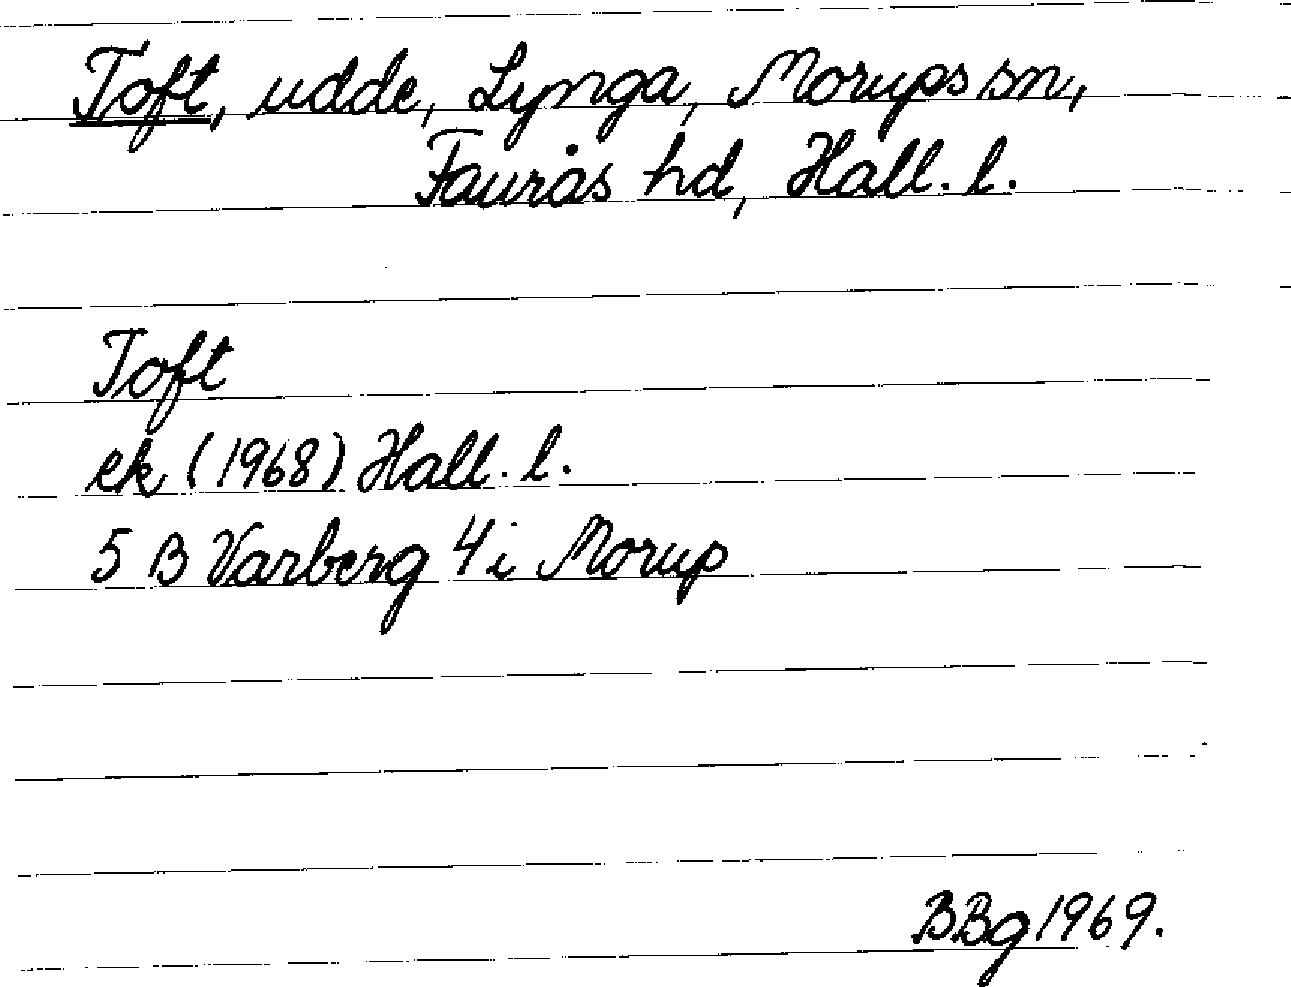 Toft, udde, Lynga, Morups sn,
Faurås hd, Hall. l.
Toft
ek (1968) Hall. l.
5 B Varberg 4 i Morup
BBg 1969.